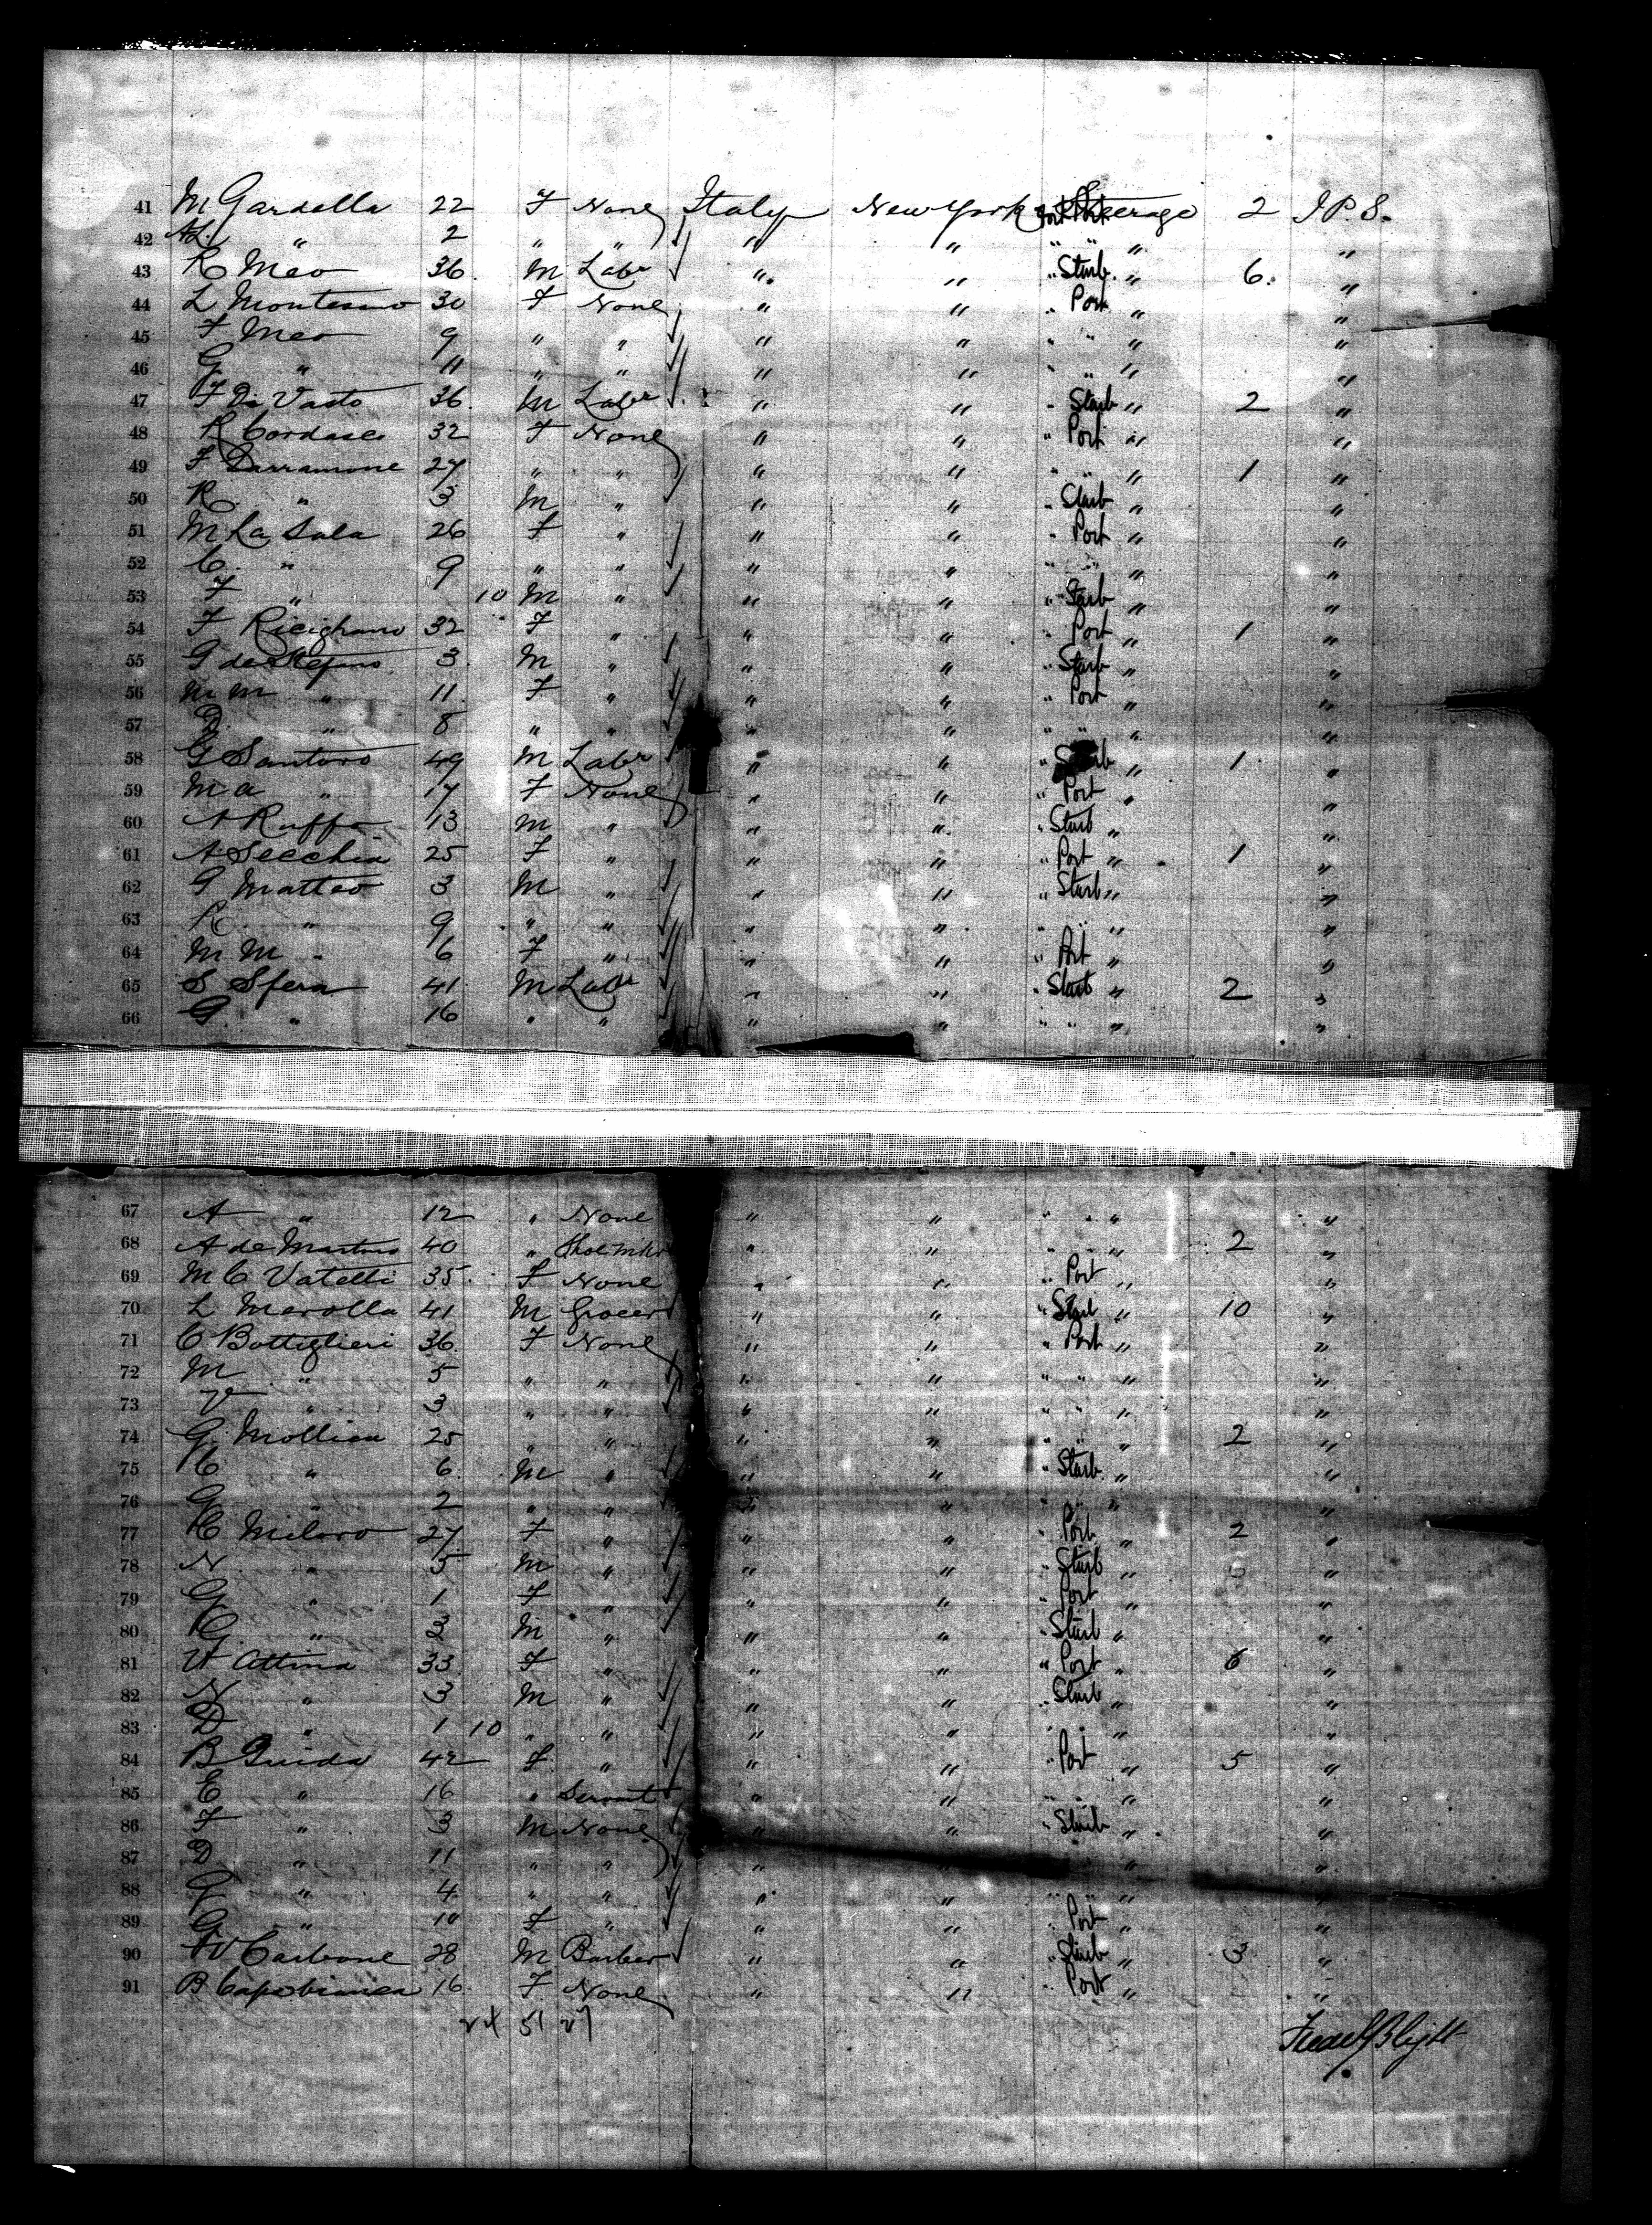 41 M Gardella 22 F None Italy New York Steerage 2 I.P.S.
42 " 2 " " " " " " " "
43 R Meo 36 M Labr " " " Starb. " 6 "
44 L Montesano 30 F None " " " Port " "
45 F Meo 9 " " " " " " " "
46 G " 11 " " " " " " " "
47 F Di Vasto 36 M Labr " " " Starb " 2 "
48 R Cordasco 32 F None " " " Port " "
49 F Darramone 27 " " " " " " " 1 "
50 R " 3 M " " " " Starb " "
51 M La Sala 26 F " " " " Port " "
52 C. " 9 " " " " " " " "
53 F " 10 M " " " " Starb " "
54 F Ricigliano 32 F " " " " Port " 1 "
55 G de Stefano 3 M " " " " Starb " "
56 M M " 11 F " " " " Port " "
57 D. " 8 " " " " " " " "
58 G Santoro 49 M Labr " " " Starb " 1 "
59 M a " 17 F None " " " Port " "
60 A Ruffo 13 M " " " " Starb " "
61 A Secchia 25 F " " " " Port " 1 "
62 G Matteo 3 M " " " " Starb " "
63 R " 9 " " " " " " " "
64 M M " 6 F " " " " Port " "
65 S Sfera 41 M Labr " " " Starb " 2 "
66 G " 16 " " " " " " " "
67 A " 12 " None " " " " " "
68 A de Martino 40 " Shoemkr " " " " " 2 "
69 M C Vatelli 35 F None " " " Port " "
70 L Marolla 41 M Grocer " " " Starb " 10 "
71 C Bottiglieri 36 F None " " " Port " "
72 M " 5 " " " " " " " "
73 V " 3 " " " " " " " "
74 G Mollica 25 " " " " " " " 2 "
75 C " 6 M " " " " Starb. " "
76 G " 2 " " " " " " " "
77 C Miloro 27 F " " " " Port " 2 "
78 N " 5 M " " " " Starb " "
79 G " 1 F " " " " Port " "
80 G. " 3 M " " " " Starb " "
81 Attina 33 F " " " " Port " 6 "
82 N " 3 M " " " " Starb " "
83 D " 1 10 " " " " " " " "
84 B Guida 42 F " " " " Port " 5 "
85 E " 16 " Servant " " " " " "
86 F " 3 M None " " " Starb " "
87 D " 11 " " " " " "
88 G " 4 " " " " " " " "
89 G " 10 F " " " " Port " "
90 Carbone 28 M Barber " " " Starb " 3 "
91 B Capobianca 16 F None " " " Port " "
24 51 27
Fredk Blight